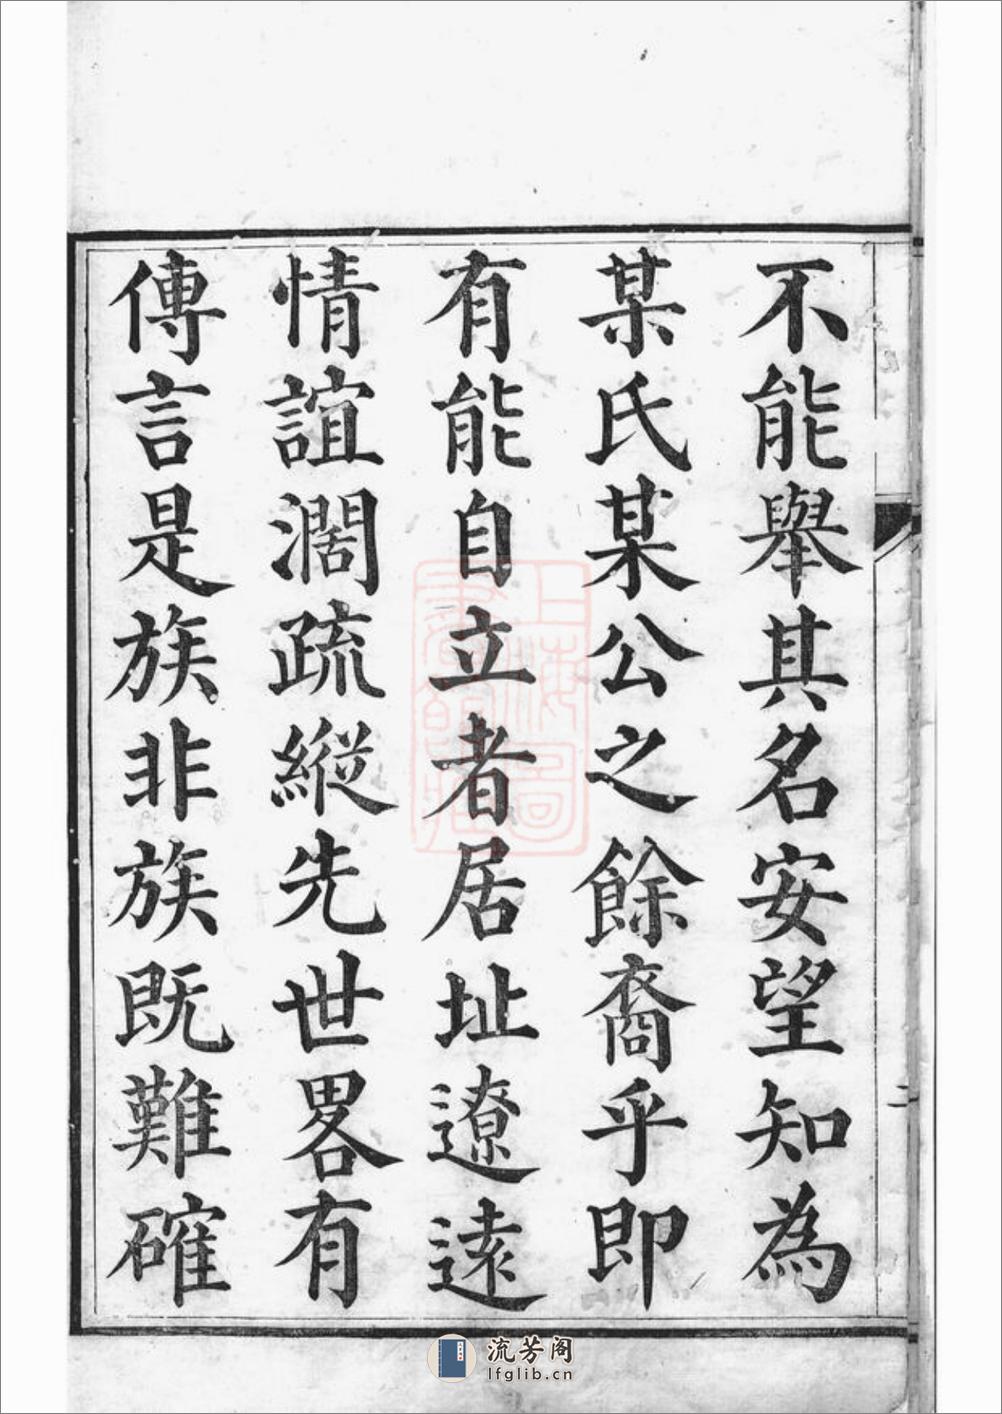 不能舉其名安望知為
某氏某公之餘裔乎即
有能自立者居址遼遠
情誼濶疏縱先世畧有
傳言是族非族既難確
二
上海圖書館藏
流芳阁
lfglib.cn